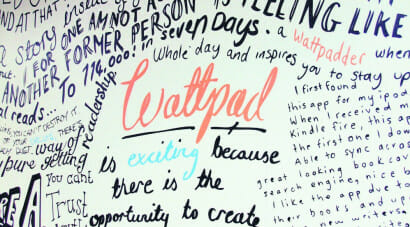 AND AT THAT
inside of
IS FEELING LIKE
a story
ONE AM NOT A
FOR
FORMER PERSON
in seven DAYS. a wattpadder when
ANOTHER
TO 114,000!
Whole day and inspires you to stay up
al reads...
readership.
Wattpad
is exciting because
there is the
opportunity to create
way of
pure getting
you cant
Trust
I first found
this app for my ipod
When I received m
Kindle fire, this ap
the first one I don
Able to sync across
great looking book cov
search engine, nice b
like the app due to
their books and up
new writers